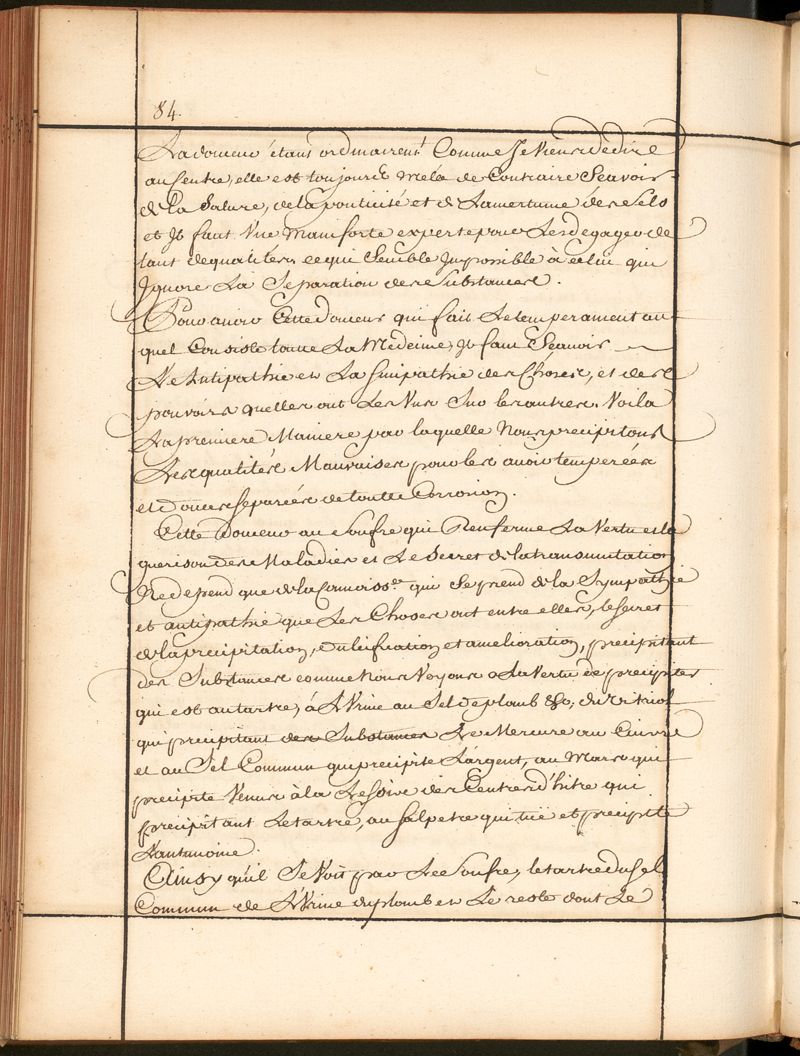 84.
La douceur étant ordinairemt Comme Je Viens de dire
au Centre, elle est toujours melé de Contraire Scavoir
de la Salure, de la ponticité et de Lamertume des Sels
et Jl faut Vne Main forte experte pour Les degager de
tant de qualitéz ce qui Semble Jmpossible à celui qui
Jgnore La Separation des Substances.
Pour avoir Cette douceur qui fait Le temperament au
quel Consiste toutte La Medecine, Jl faut Scavoir
L'Antipathie et La Simpathie des Choses, et des
pouvoirs quelles ont Les Vns Sur les autres. Voila
La premiere Maniere par laquelle Nous precipitons
Les qualitéz Mauvaises pour les avoir temperées
et douces separées de toutte Corrosion.
Cette Douceur au Soufre qui Renferme La Vertu et la
guerison des Maladies et Le Secret de la transmutation
Ne depend que de la Connoissce qui Se prend de la Sympathie
et antipathie que Les Choses ont entre elles, le secret
de la precipitation, dulcification et amelioration, precipitant
des Substances comme Nous Voyons a La Vertu de precipiter
qui est au tartre, à L'Vrine au Sel de plomb &c, du Vitriol
qui precipitant des Substances Le Mercure au Cuivre
et au Sel Commun qui precipite L'argent, au Mars qui
precipite Venus à la Lessive des Cendres d'hitre qui
precipitant Le tartre, au Salpetre qui tüe et precipite
L'antimoine.
Ainsy qu'il Se Voit par Le Soufre, le tartre du Sel
Commun de L'Vrine du plomb et Le reste dont Le